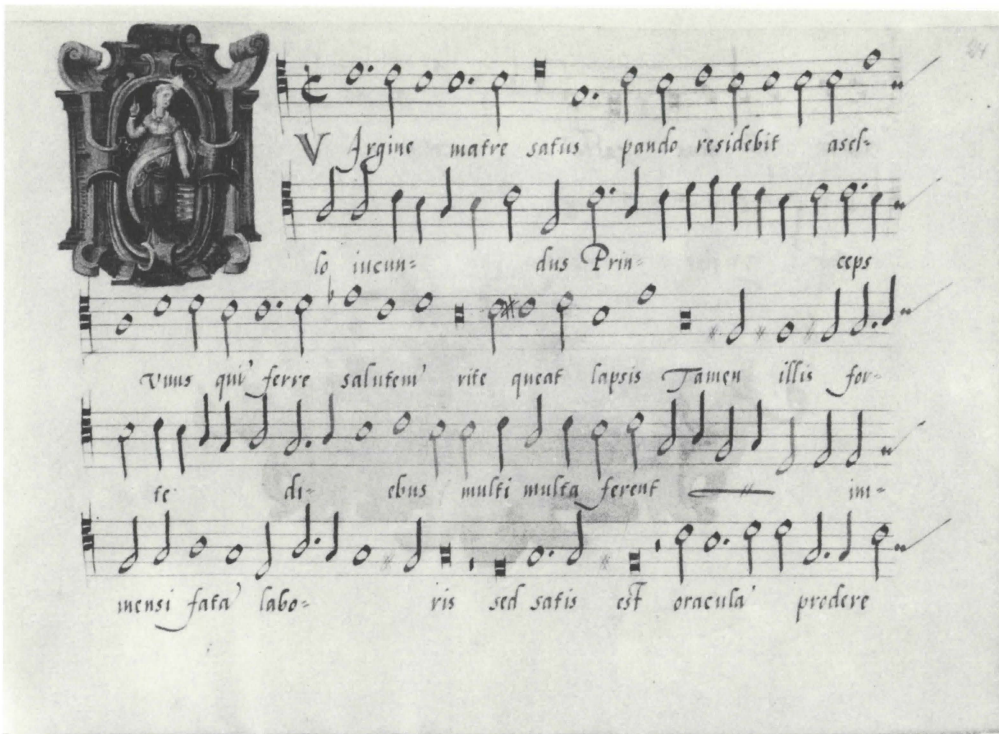 24
VIrgine matre satus pando residebit asel-
lo iucun- dus Prin- ceps
vnus qui ferre salutem rite queat lapsis Tamen illis for-
te di- ebus multi multa ferent im-
mensi fata labo- ris sed satis est oracula prodere